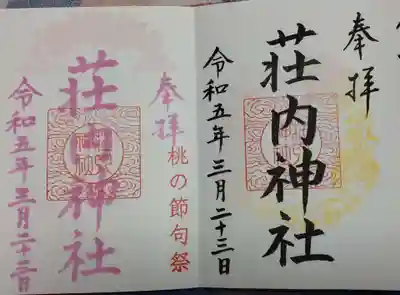 奉拝
荘内神社
令和五年三月二十三日
奉拝
桃の節句祭
荘内神社
令和五年三月二十二日